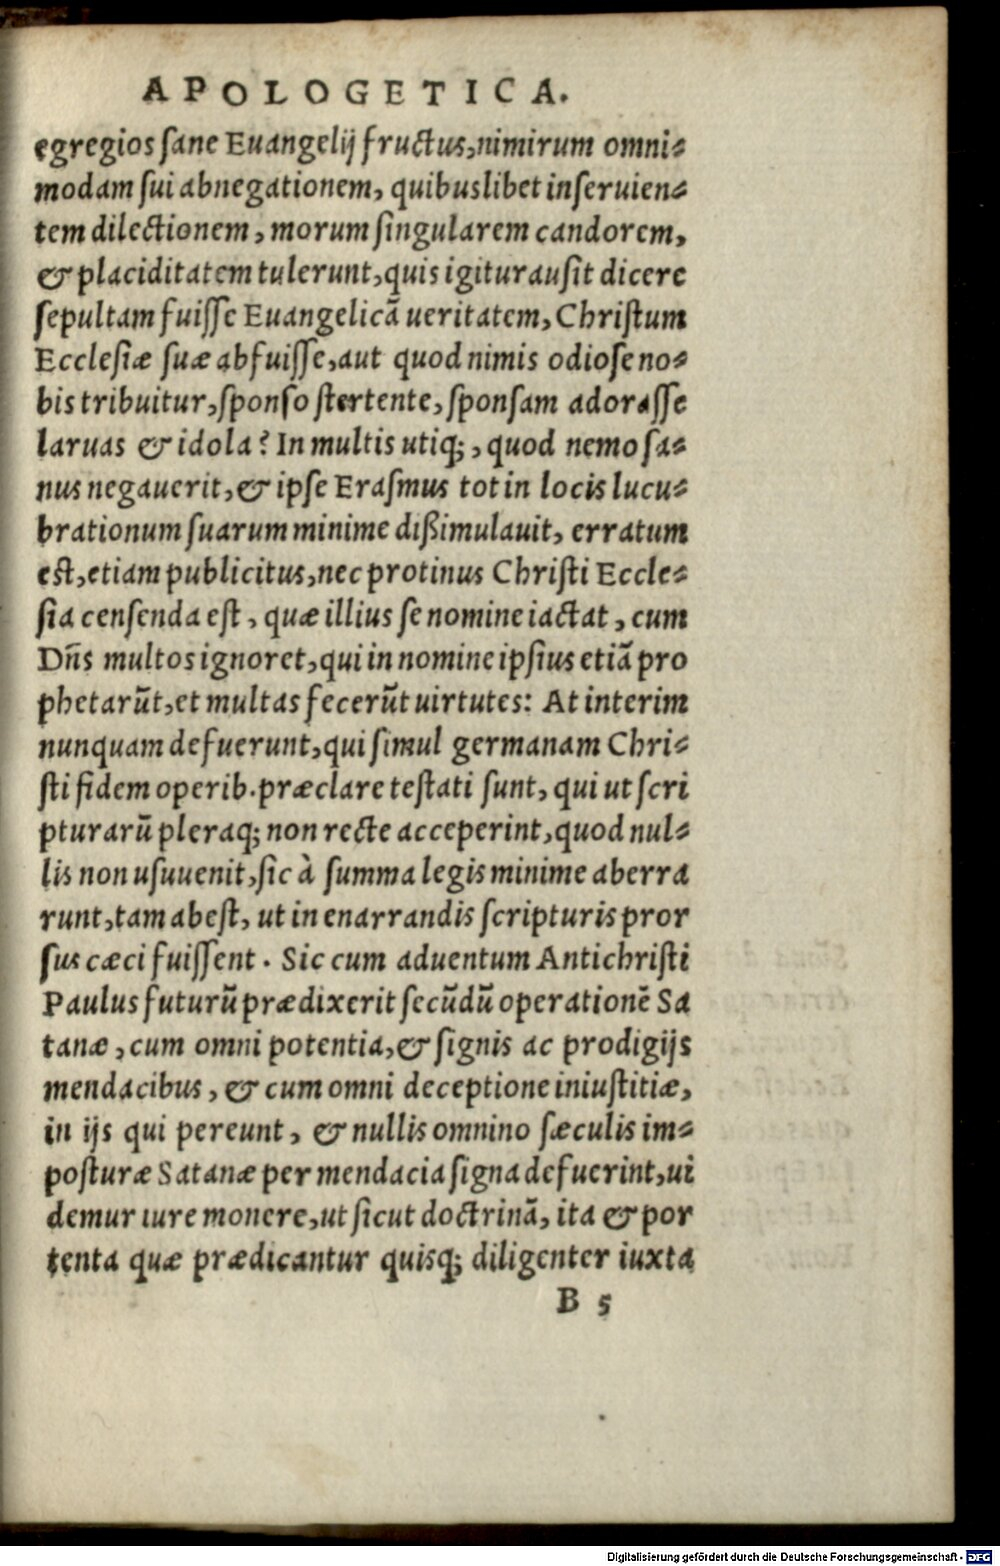 APOLOGETICA.
egregios sane Euangelij fructus, nimirum omni⸗
modam sui abnegationem, quibuslibet inseruien⸗
tem dilectionem, morum singularem candorem,
& placiditatem tulerunt, quis igitur ausit dicere
sepultam fuisse Euangelicā ueritatem, Christum
Ecclesiæ suæ abfuisse, aut quod nimis odiose no⸗
bis tribuitur, sponso stertente, sponsam adorasse
laruas & idola? In multis utiq;, quod nemo sa⸗
nus negauerit, & ipse Erasmus tot in locis lucu⸗
brationum suarum minime dißimulauit, erratum
est, etiam publicitus, nec protinus Christi Eccle⸗
sia censenda est, quæ illius se nomine iactat, cum
Dñs multos ignoret, qui in nomine ipsius etiā pro
phetarūt, et multas fecerūt uirtutes: At interim
nunquam defuerunt, qui simul germanam Chri⸗
sti fidem operib. præclare testati sunt, qui ut scri
pturarū pleraq; non recte acceperint, quod nul⸗
lis non usuuenit, sic à summa legis minime aberra
runt, tam abest, ut in enarrandis scripturis pror
sus cæci fuissent. Sic cum aduentum Antichristi
Paulus futurū prædixerit secūdū operationē Sa
tanæ, cum omni potentia, & signis ac prodigijs
mendacibus, & cum omni deceptione iniustitiæ,
in ijs qui pereunt, & nullis omnino sæculis im⸗
posturæ Satanæ per mendacia signa defuerint, ui
demur iure monere, ut sicut doctrinā, ita & por
tenta quæ prædicantur quisq; diligenter iuxta
B 5
Digitalisierung gefördert durch die Deutsche Forschungsgemeinschaft - DFG